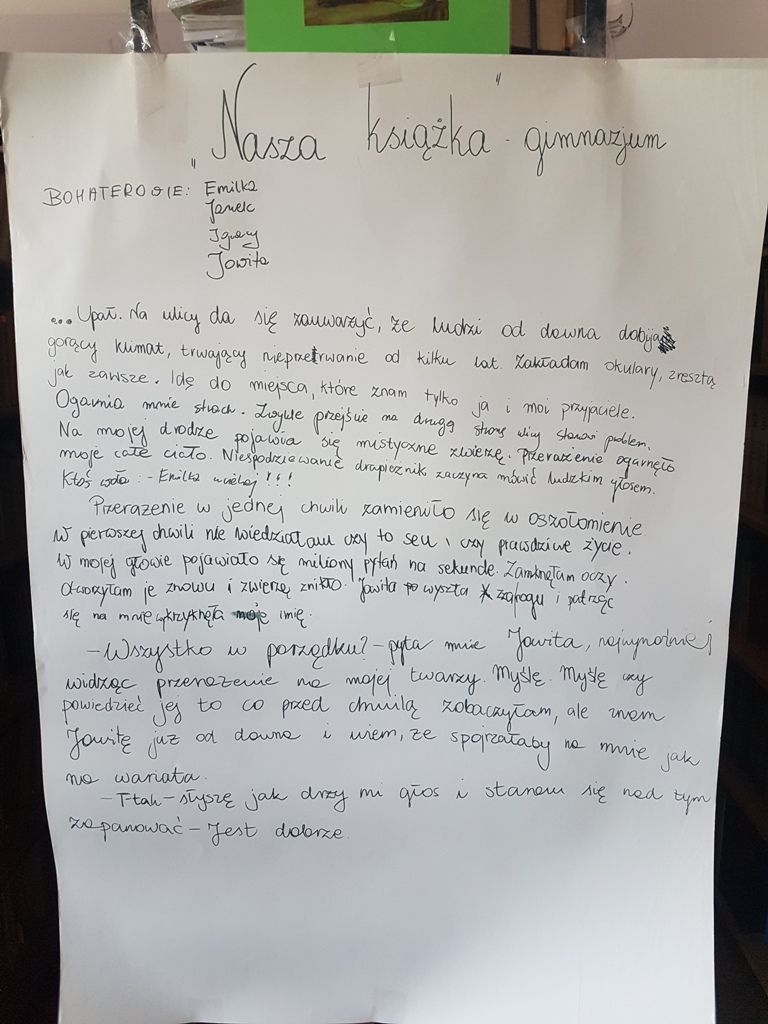 „Nasza książka" - gimnazjum
BOHATEROWIE: Emilka
Janek
Ignacy
Jowita
...Upał. Na ulicy da się zauważyć, że ludzi od dawna dobija
gorący klimat, trwający nieprzerwanie od kilku lat. Zakładam okulary, zresztą
jak zawsze. Idę do miejsca, które znam tylko ja i moi przyjaciele.
Ogarnia mnie strach. Zwykle przejście na drugą stronę ulicy stanowi problem.
Na mojej drodze pojawia się mistyczne zwierzę. Przerażenie ogarnęło
moje całe ciało. Niespodziewanie drapieżnik zaczyna mówić ludzkim głosem.
Ktoś woła: - Emilka uciekaj!!!
Przerażenie w jednej chwili zamieniło się w oszołomienie
W pierwszej chwili nie wiedziałam czy to sen, czy prawdziwe życie.
W mojej głowie pojawiało się miliony pytań na sekundę. Zamknęłam oczy.
Otworzyłam je znowu i zwierzę znikło. Jowita wyszła zza rogu i patrząc
się na mnie wykrzyknęła moje imię.
- Wszystko w porządku? - pyta mnie Jowita, najwyraźniej
widząc przerażenie na mojej twarzy. Myślę. Myślę czy
powiedzieć jej to co przed chwilą zobaczyłam, ale znam
Jowitę już od dawna i wiem, że spojrzałaby na mnie jak
na wariata.
- T-tak - słyszę jak drży mi głos i staram się nad tym
zapanować - Jest dobrze.